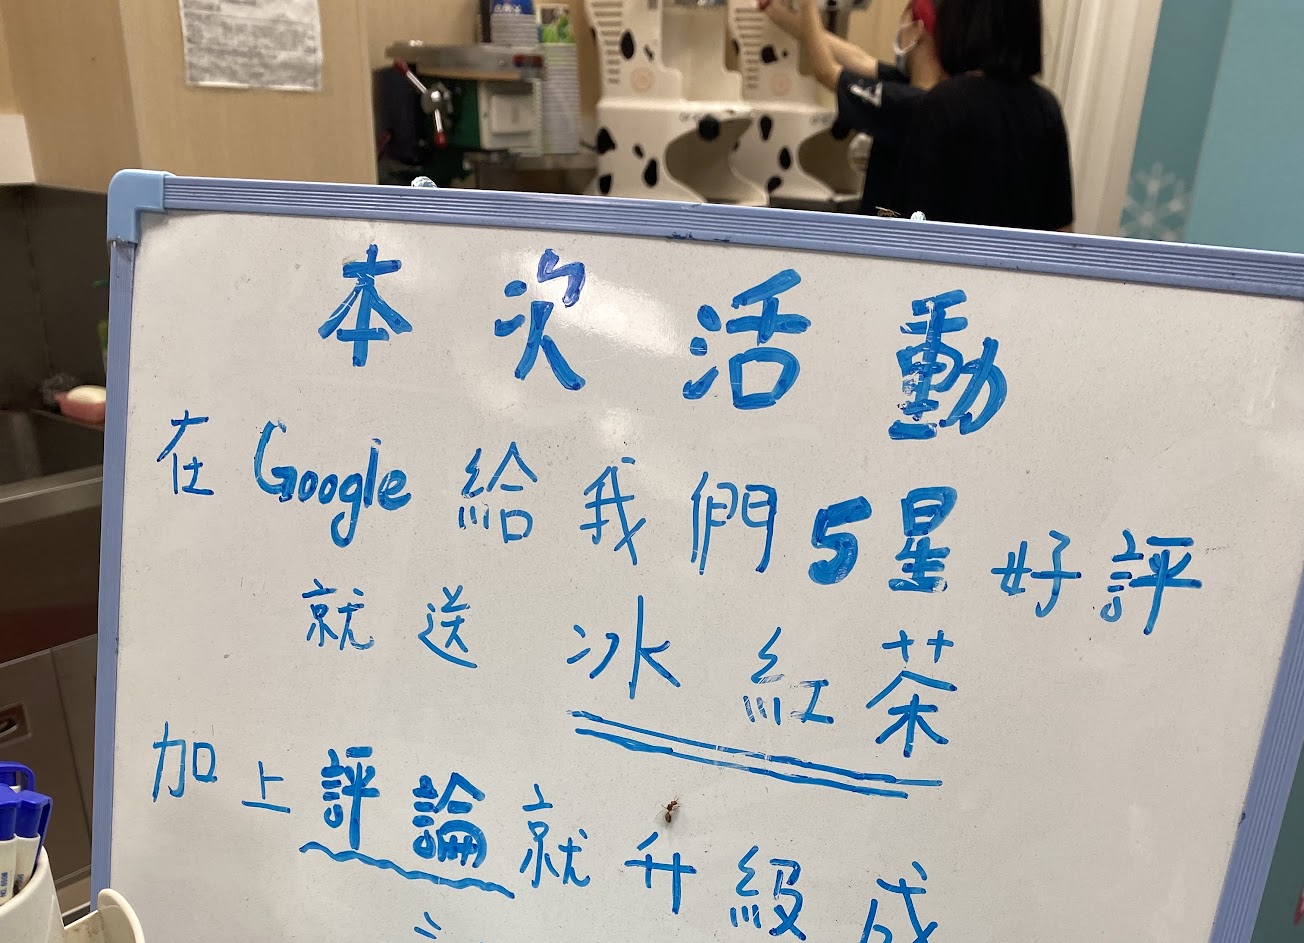 本次活動
在Google給我們5星好評
就送冰紅茶
加上評論就升級成